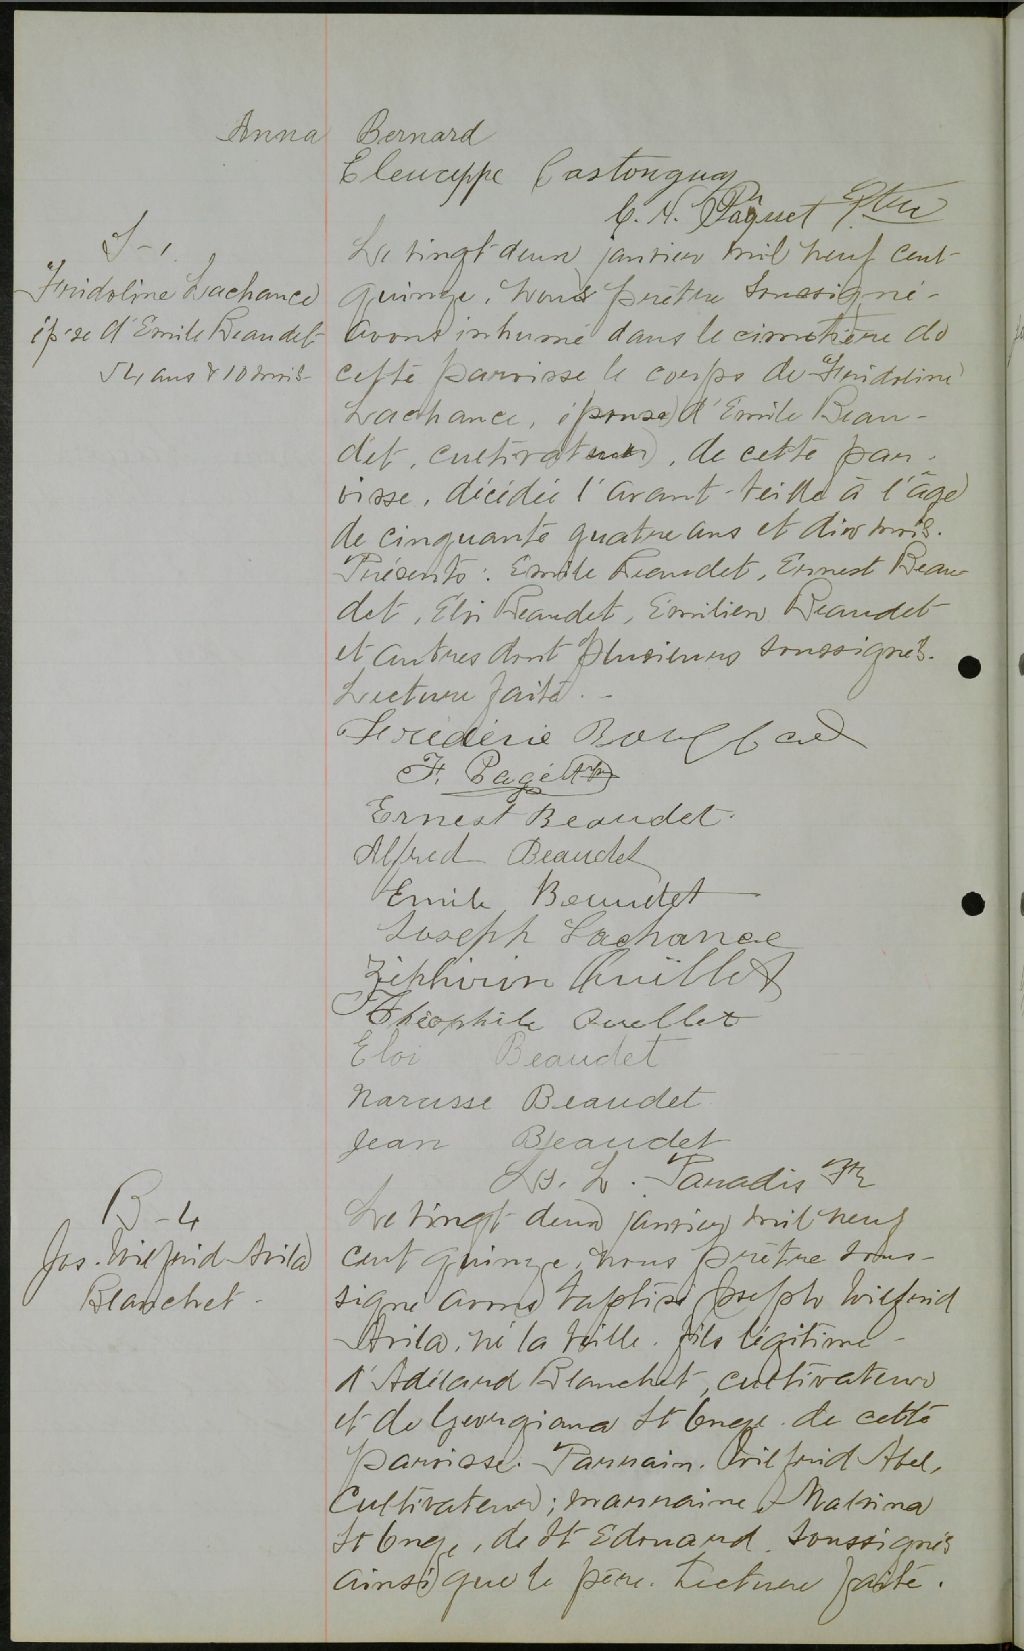 Anna Bernard
Eleucippe Castonguay
C. N. Paquet Ptre
S-1.
Fridoline Lachance
épse d'Emile Beaudet
54 ans & 10 mois
Le vingt-deux janvier mil neuf cent
quinze, nous prêtre soussigné
avons inhumé dans le cimetière de
cette paroisse le corps de Fridoline
Lachance, épouse d'Emile Beau-
det, cultivateur, de cette par-
oisse, décédée l'avant-veille à l'âge
de cinquante quatre ans et dix mois.
Présents: Emile Beaudet, Ernest Beau-
det, Eloi Beaudet, Emilien Beaudet
et autres dont plusieurs soussignés.
Lecture faite.
F. Pagé
Ernest Beaudet.
Alfred Beaudet
Emile Beaudet
Joseph Lachance
Zéphirin Ouillet
Théophile Ouellet
Eloi Beaudet
Narcisse Beaudet
Jean Beaudet
Ls. L. Paradis Ptr
B-4
Jos. Wilfrid Avila
Blanchet
Le vingt deux janvier mil neuf
cent quinze, nous prêtre sous-
signé avons baptisé Joseph Wilfrid
Avila, né la veille, fils légitime
d'Adélard Blanchet, cultivateur
et de Georgiana St Onge de cette
paroisse. Parrain. Wilfrid Abel,
cultivateur; marraine, Malvina
St Onge, de St Edouard. soussignés
ainsi que le père. Lecture faite.